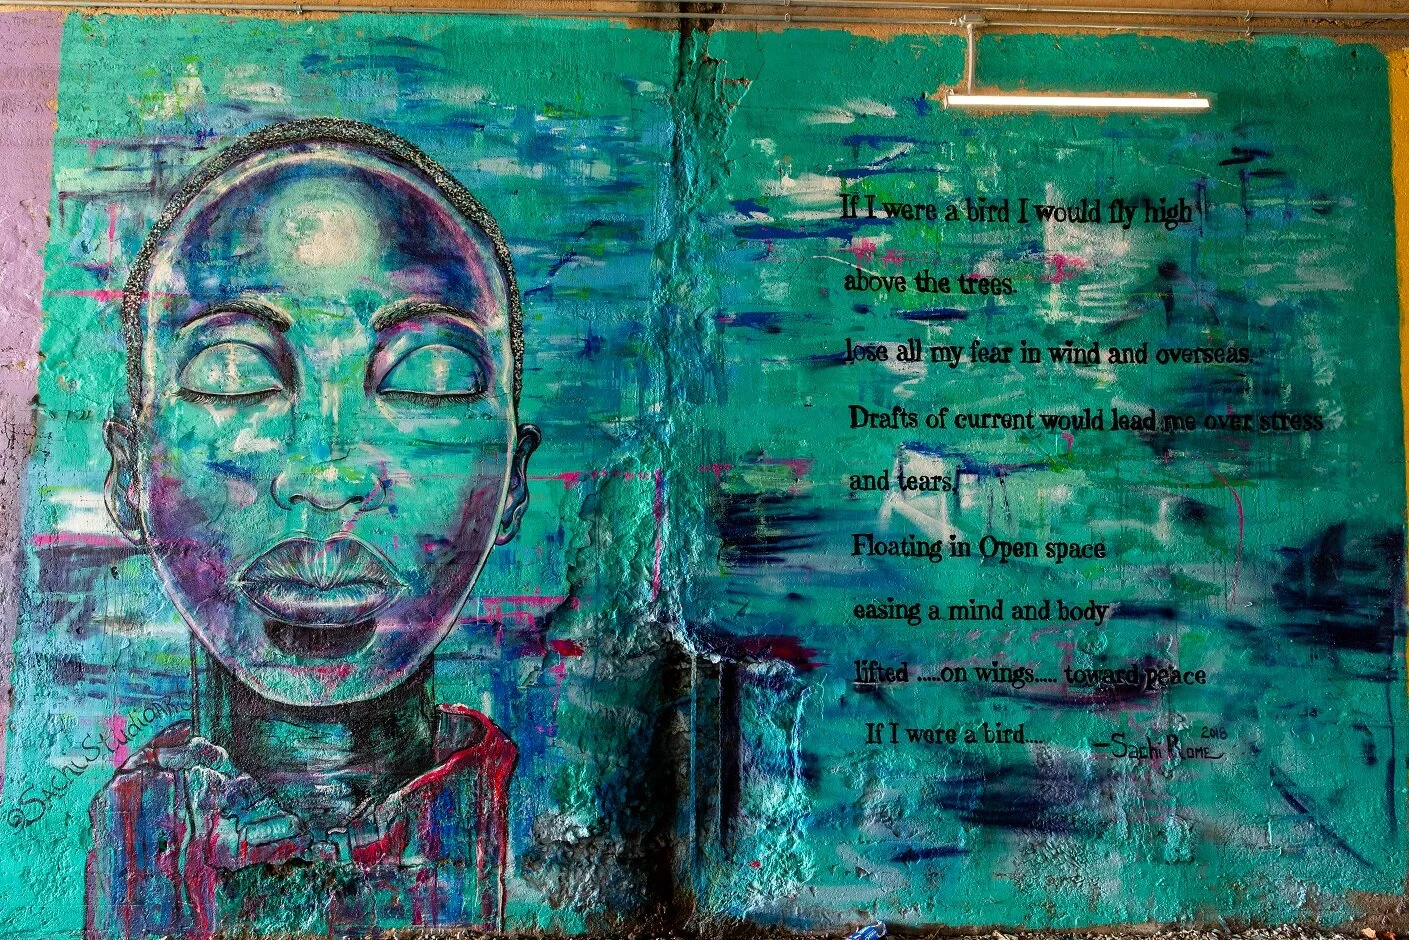 If I were a bird I would fly high
above the trees.
lose all my fear in wind and overseas.
Drafts of current would lead me over stress
and tears,
Floating in Open space
easing a mind and body
lifted .....on wings..... toward peace
If I were a bird....
—Sachi Rome 2018
@SachiStudioArt